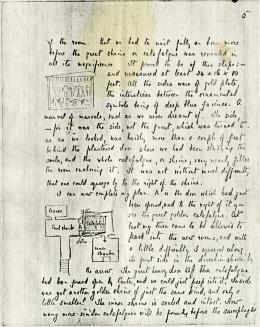 5
of the room. But we had to wait fully an hour more
before the great shrine or catafalque was revealed in
all its magnificence. It proved to be of this shape—
and measured at least 24 x 16 x 10
feet. All the sides were of gold plate
the interstices between the ornamental
symbols being of deep blue faience. A
marvel of marvels, such as we never dreamt of. The side
— for it was the side, not the front, which was turned to
us as we looked, was hardly more than a couple of feet
behind the plastered door when we had been standing this
and the whole catafalque, or shrine, very nearly fills
the room enclosing it. It was not without difficulty
that one could squeeze by to the right of the shrine.
I can now complete my plan. A is the door which had just
been opened and to the right of it you
see the great golden catafalque. At
last my turn came to be allowed to
pass into the new rooms, and with
a little difficulty I squeezed along
its front side in the direction shown by
an arrow. The great heavy door left that catafalque
had been forced open by Carter, and we could just peep into it. Inside
was yet another golden shrine of just the same kind, and only a
little smaller. The inner shrine is sealed and intact. How
many more similar catafalques will be found, before the sarcophagus